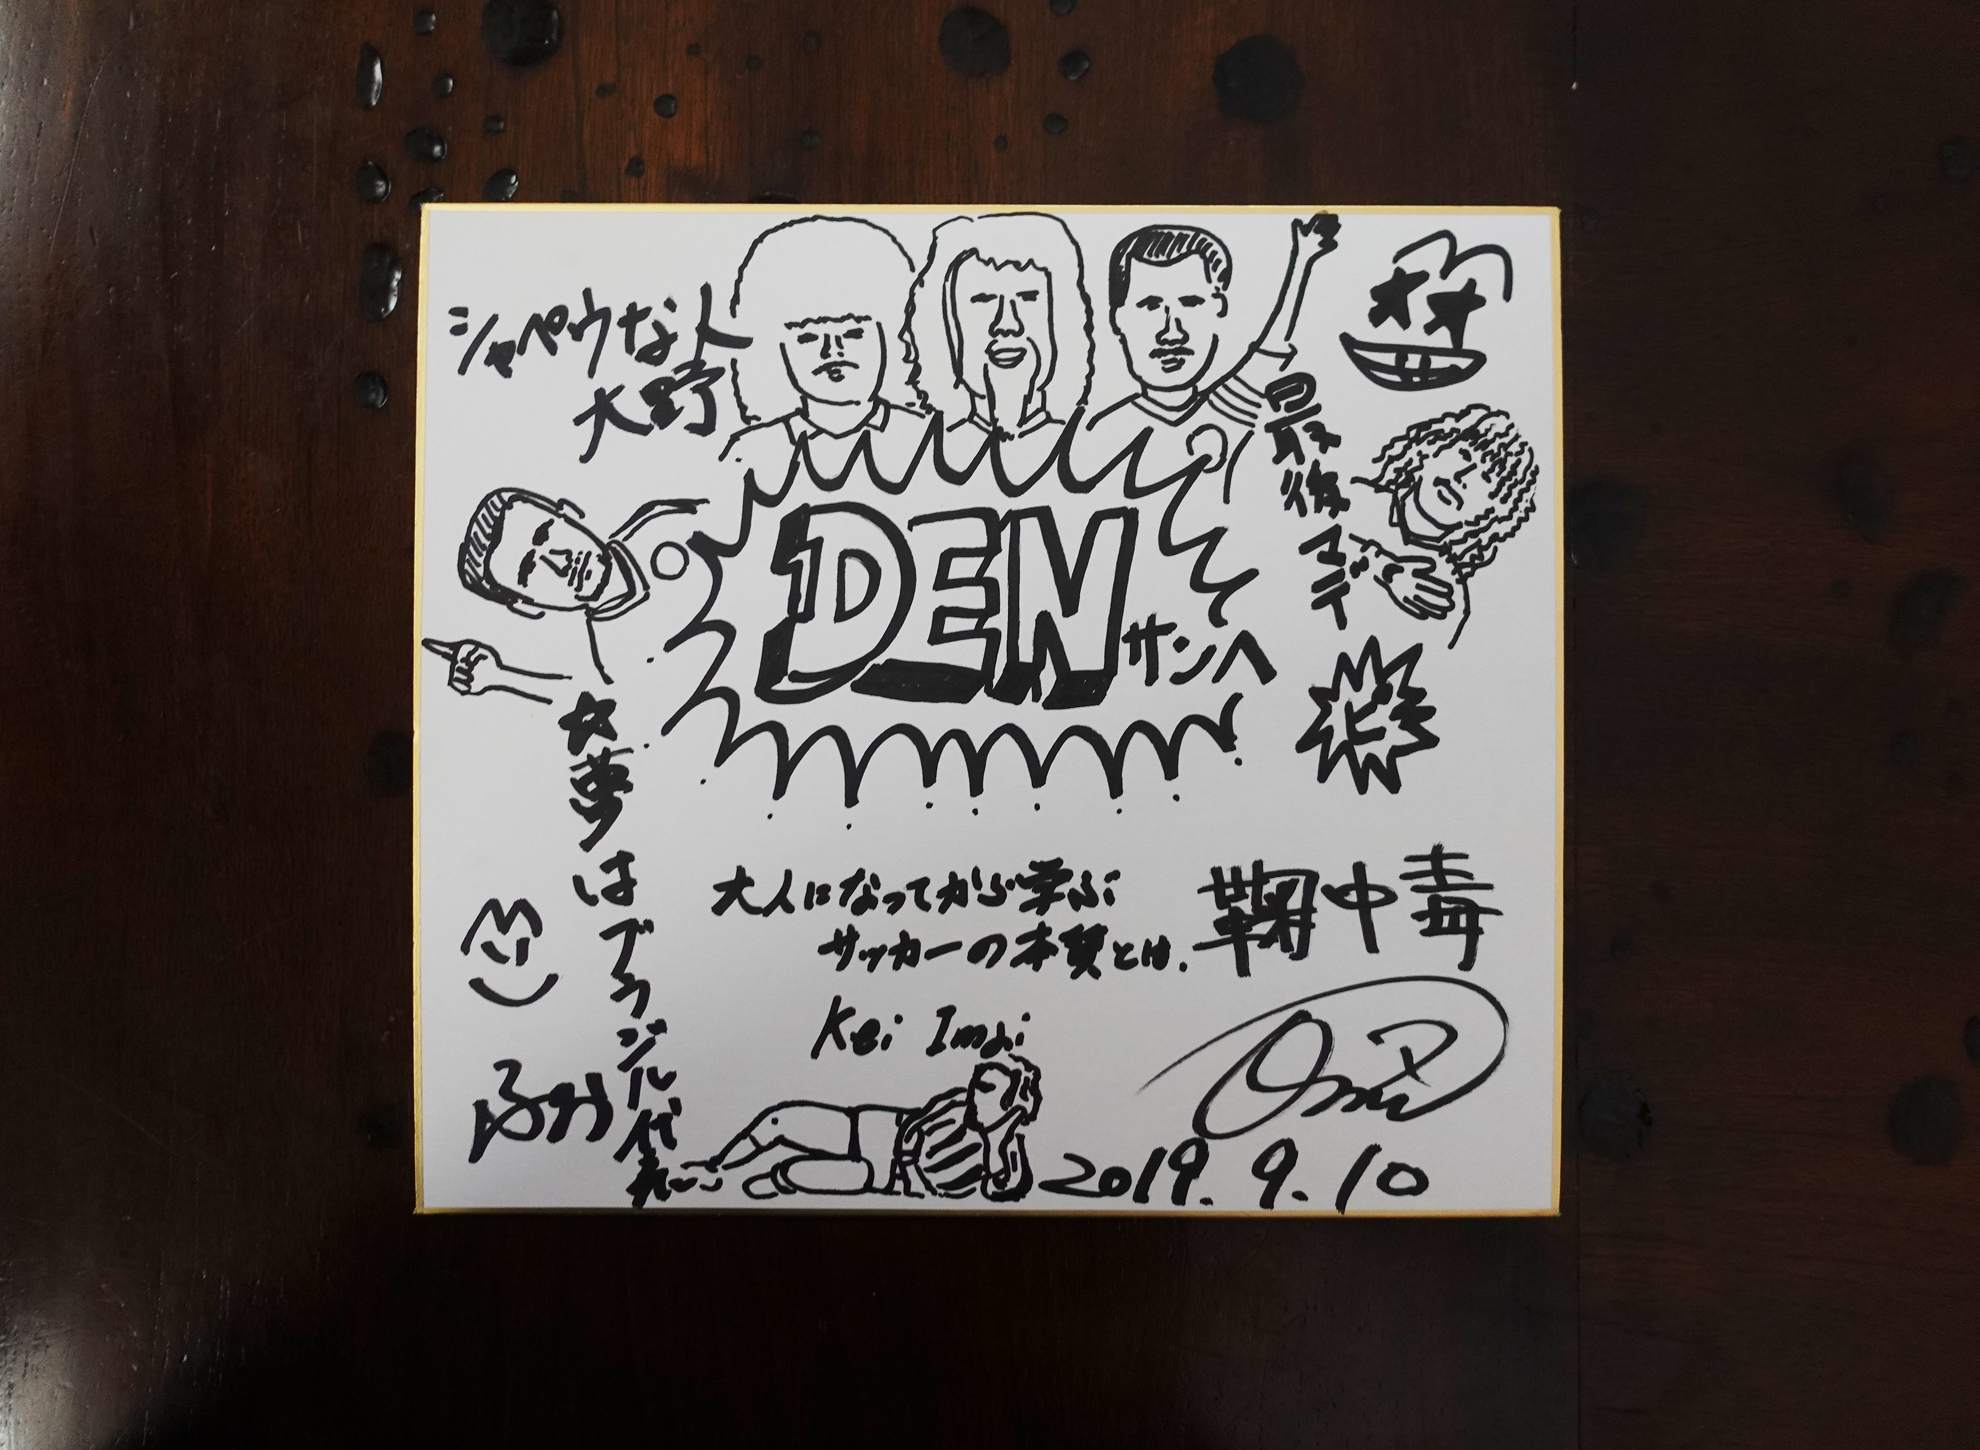 シャペウな人
大野
DEN
サンへ
最後マデ
☆夢はブラジル代表
大人になってから学ぶ
サッカーの本質とは、
鞠中毒
Kei Imai
2019.9.10